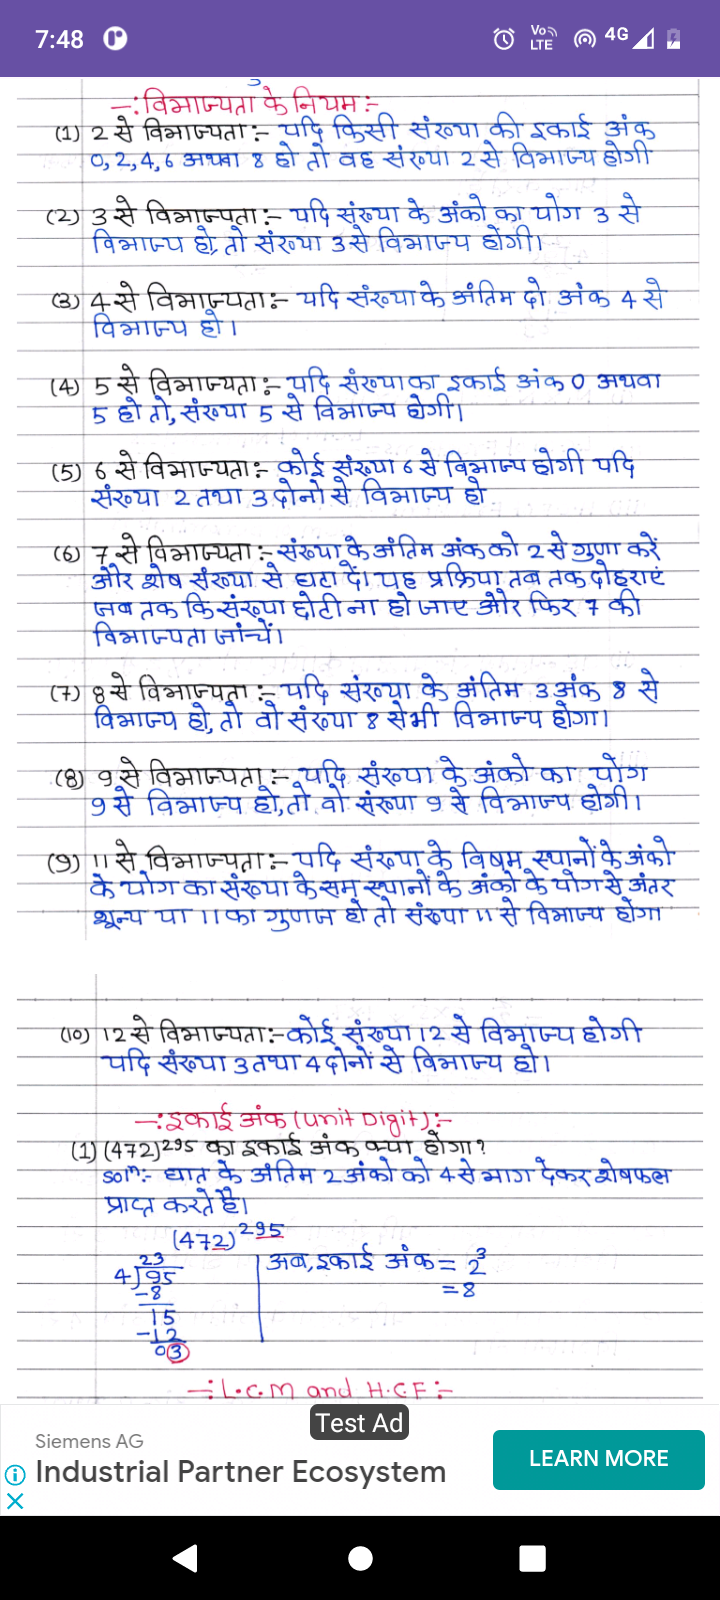 7:48
Vo
LTE
4G
-: विभाज्यता के नियम :-
(1) 2 से विभाज्यता :- यदि किसी संख्या की इकाई अंक
0, 2, 4, 6 अथवा 8 हो तो वह संख्या 2 से विभाज्य होगी
(2) 3 से विभाज्यता :- यदि संख्या के अंको का योग 3 से
विभाज्य हो, तो संख्या 3 से विभाज्य होगी।
(3) 4 से विभाज्यता :- यदि संख्या के अंतिम दो अंक 4 से
विभाज्य हो।
(4) 5 से विभाज्यता :- यदि संख्या का इकाई अंक 0 अथवा
5 हो तो, संख्या 5 से विभाज्य होगी।
(5) 6 से विभाज्यता :- कोई संख्या 6 से विभाज्य होगी यदि
संख्या 2 तथा 3 दोनो से विभाज्य हो
(6) 7 से विभाज्यता :- संख्या के अंतिम अंक को 2 से गुणा करें
और शेष संख्या से घटा दें। यह प्रक्रिया तब तक दोहराएं
जब तक कि संख्या छोटी ना हो जाए और फिर 7 की
विभाज्यता जांचें।
(7) 8 से विभाज्यता :- यदि संख्या के अंतिम 3 अंक 8 से
विभाज्य हो, तो वो संख्या 8 से भी विभाज्य होगा।
(8) 9 से विभाज्यता :- यदि संख्या के अंको का योग
9 से विभाज्य हो, तो वो संख्या 9 से विभाज्य होगी।
(9) 11 से विभाज्यता :- यदि संख्या के विषम स्थानों के अंको
के योग का संख्या के सम स्थानों के अंको के योग से अंतर
शून्य या 11 का गुणज हो तो संख्या 11 से विभाज्य होगा
(10) 12 से विभाज्यता :- कोई संख्या 12 से विभाज्य होगी
यदि संख्या 3 तथा 4 दोनों से विभाज्य हो।
-: इकाई अंक (Unit Digit) :-
(1) (472)²⁹⁵ का इकाई अंक क्या होगा?
solⁿ:- घात के अंतिम 2 अंको को 4 से भाग देकर शेषफल
प्राप्त करते है।
(472)²⁹⁵
23
4)95
-8
15
-12
03
अब, इकाई अंक = 2³
= 8
-: L.C.M and H.C.F :-
Test Ad
Siemens AG
Industrial Partner Ecosystem
LEARN MORE